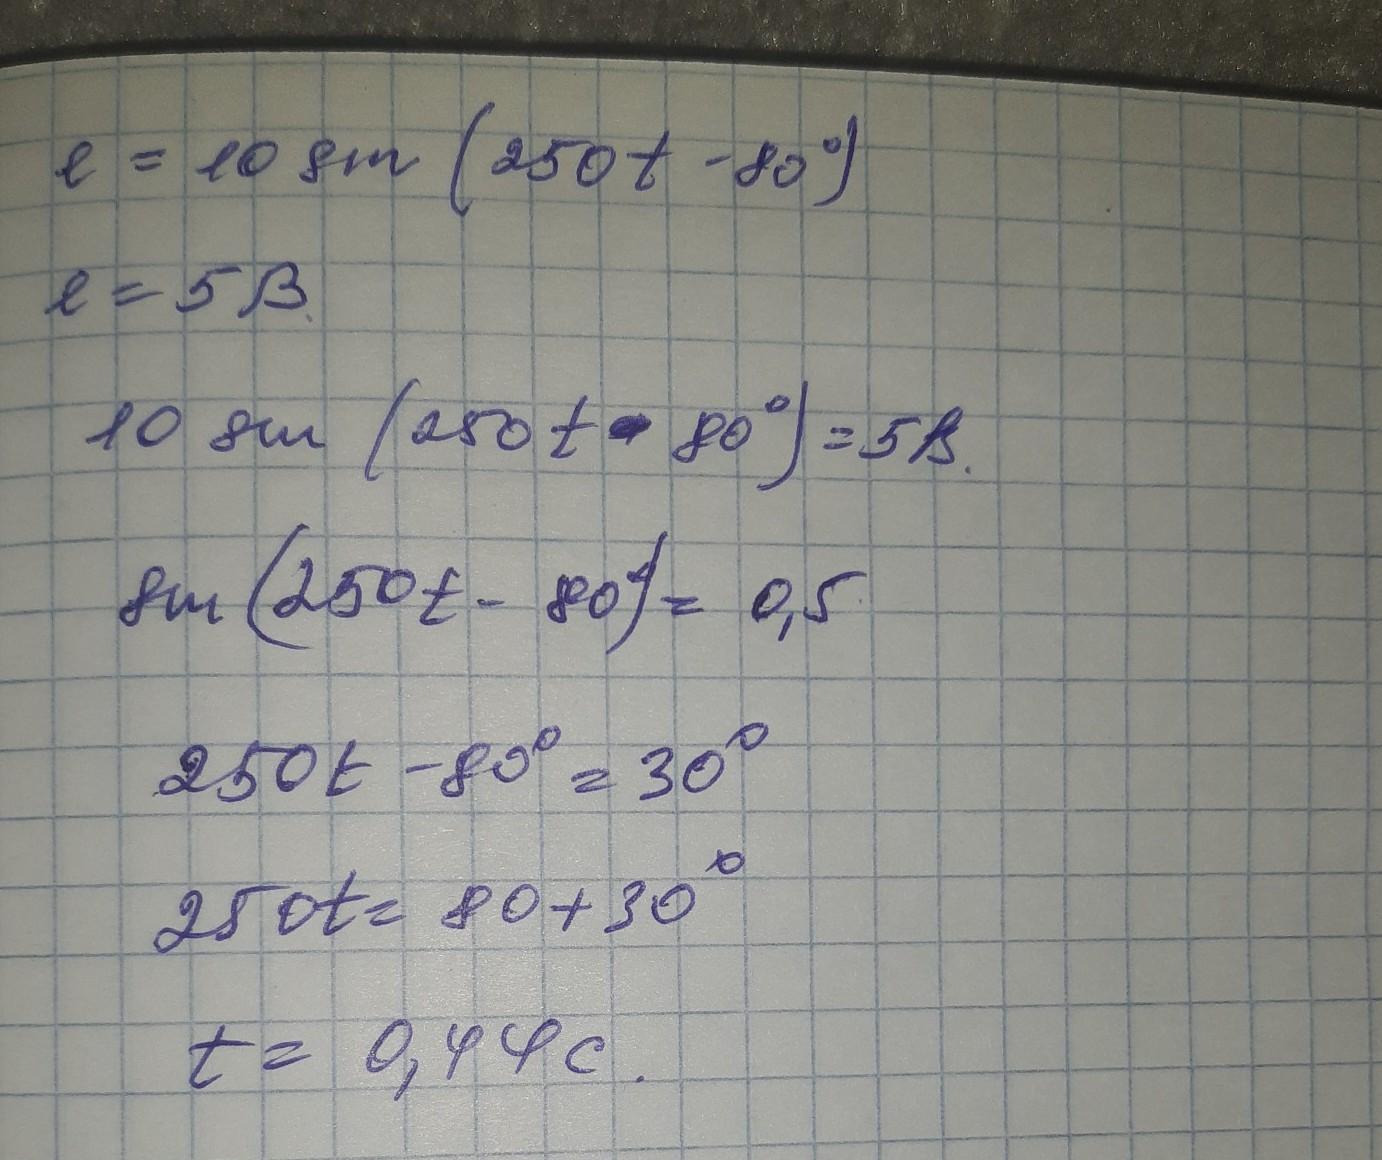 e = 10 sin (250t - 80°)
e = 5 В.
10 sin (250 t - 80°) = 5 В.
sin (250t - 80°) = 0,5
250t - 80° = 30°
250t = 80 + 30°
t = 0,44 с.